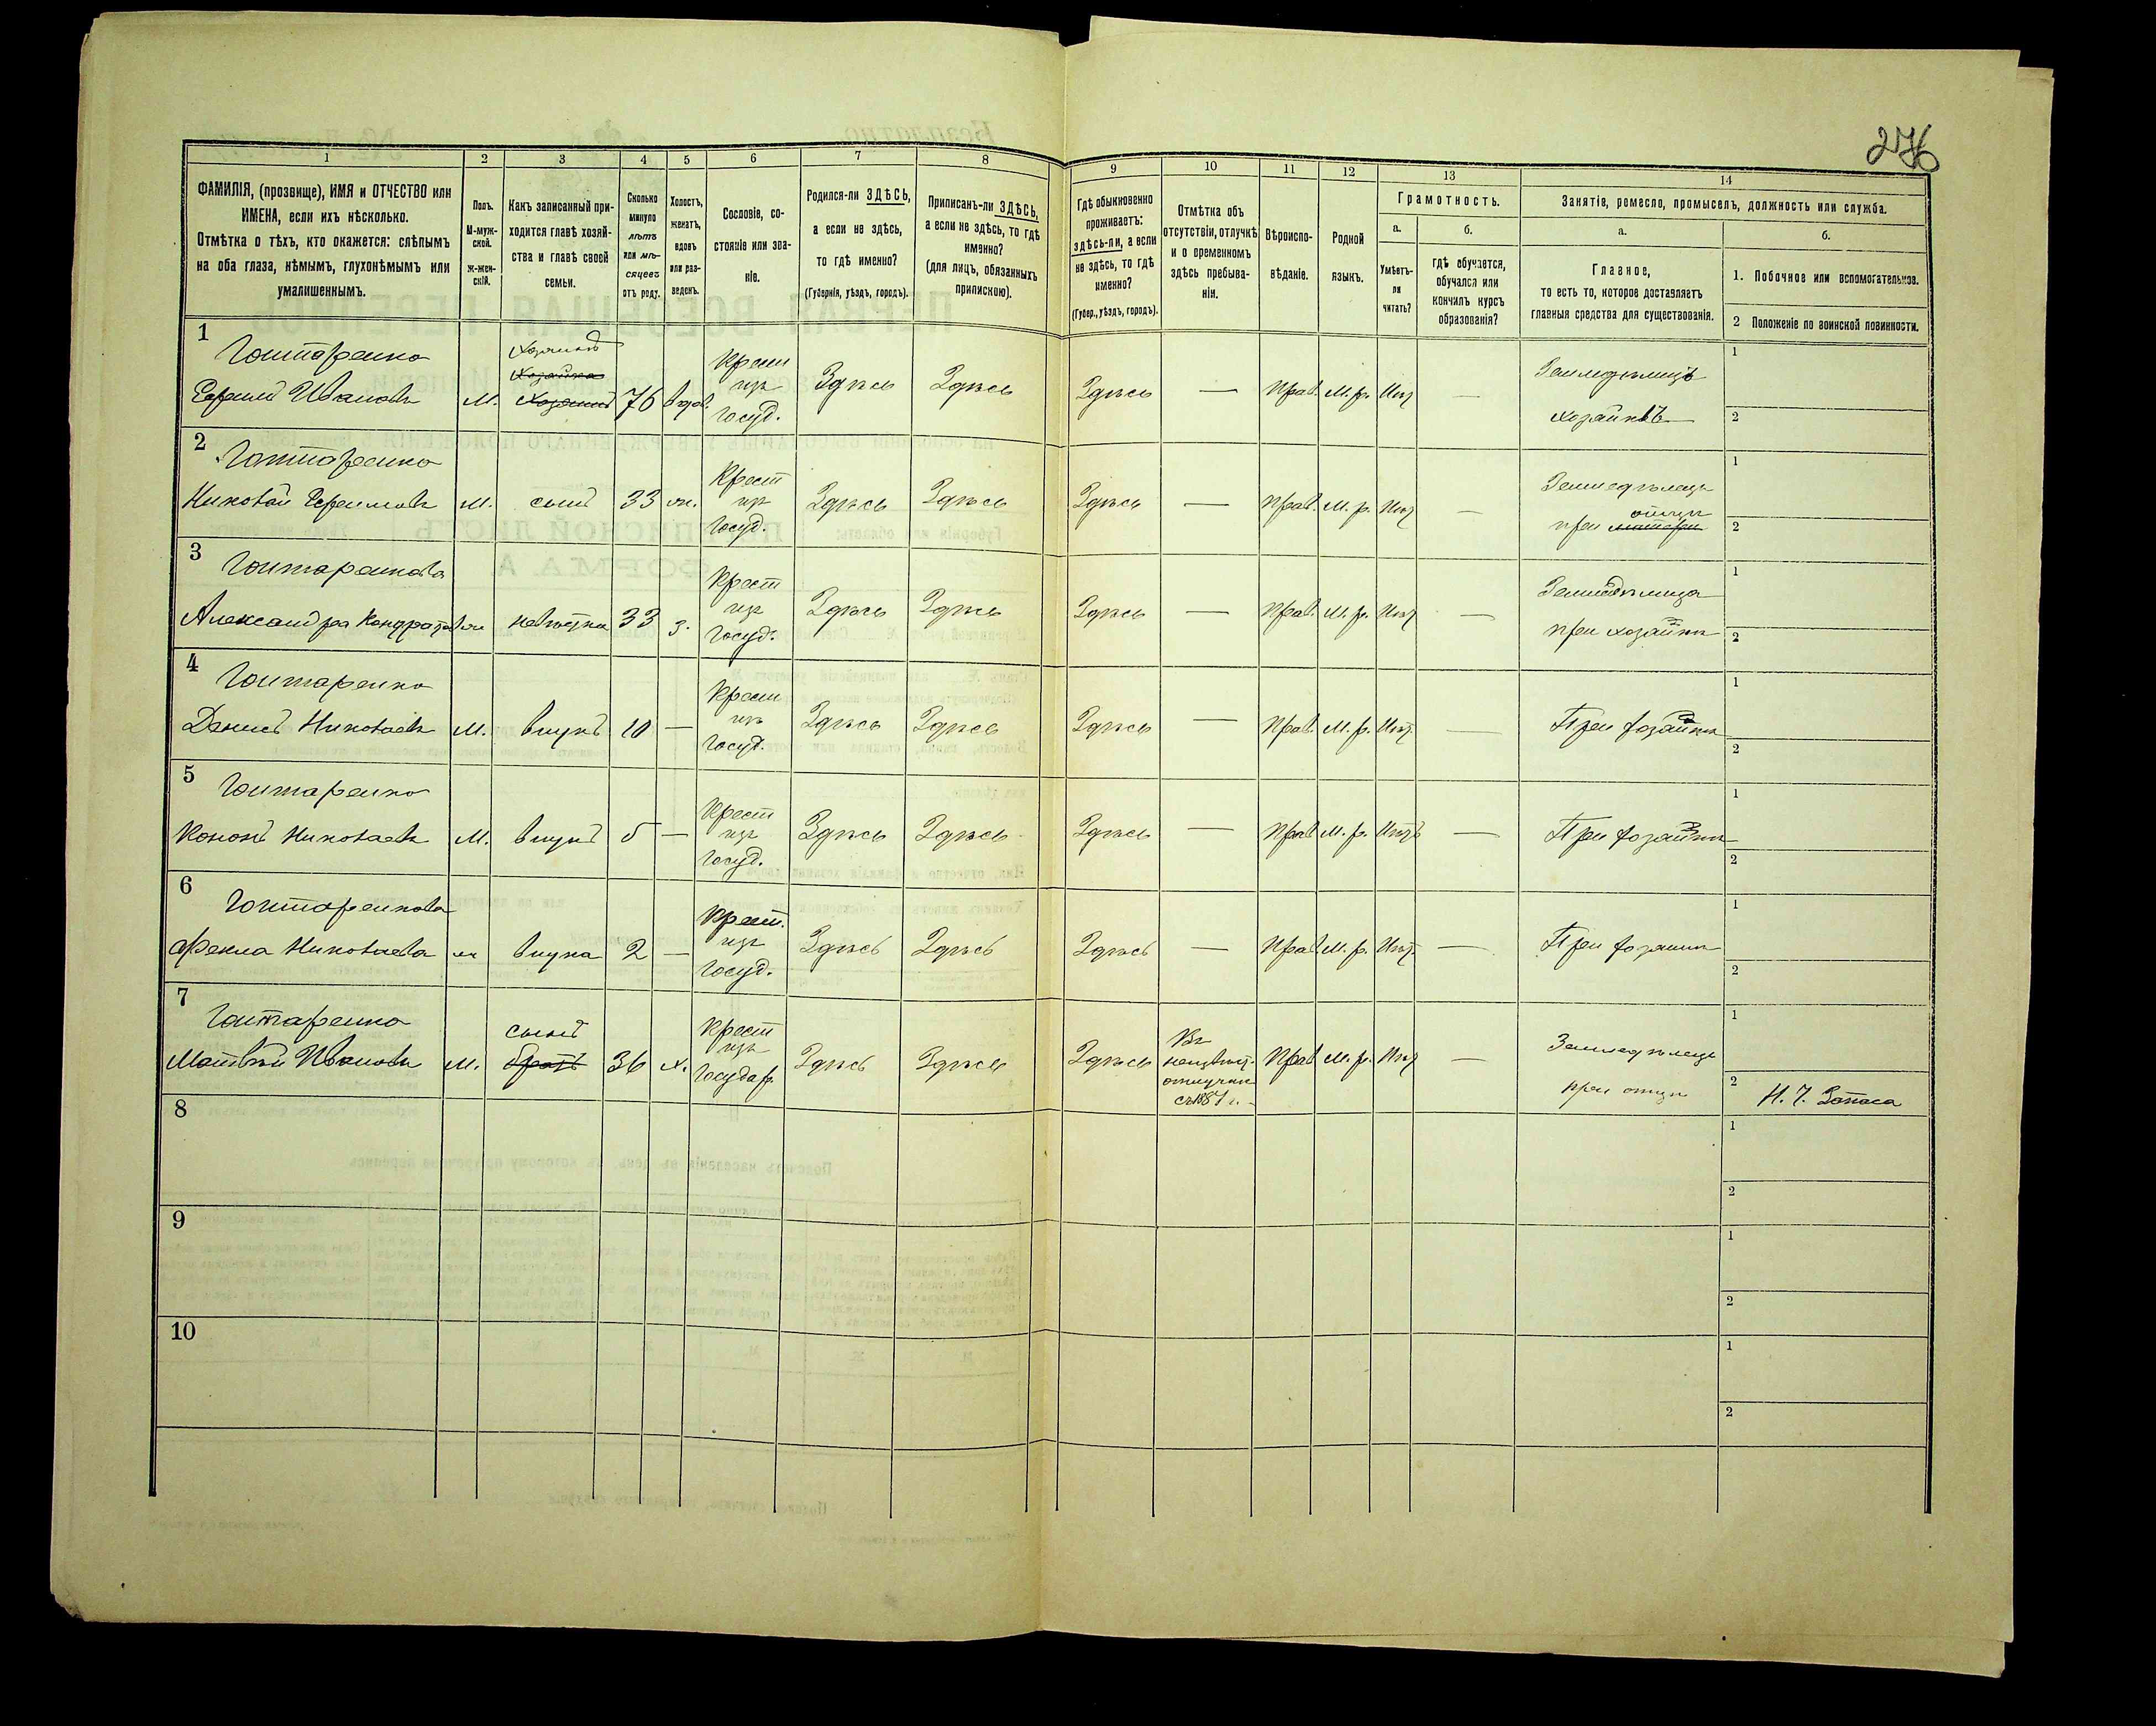 276
1 2 3 4 5 6 7 8 9 10 11 12 13 14
ФАМИЛІЯ, (прозвище), ИМЯ и ОТЧЕСТВО или
ИМЕНА, если ихъ нѣсколько.
Отмѣтка о тѣхъ, кто окажется: слѣпымъ
на оба глаза, нѣмымъ, глухонѣмымъ или
умалишеннымъ.
Полъ.
М-муж-
ской.
ж-жен-
скій.
Какъ записанный при-
ходится главѣ хозяй-
ства и главѣ своей
семьи.
Сколько
минуло
лѣтъ
или мѣ-
сяцевъ
отъ роду.
Холостъ,
женатъ,
вдовъ
или раз-
веденъ.
Сословіе, со-
стояніе или зва-
ніе.
Родился-ли ЗДѢСЬ,
а если не здѣсь,
то гдѣ именно?
(Губернія, уѣздъ, городъ).
Приписанъ-ли ЗДѢСЬ,
а если не здѣсь, то гдѣ
именно?
(для лицъ, обязанныхъ
припискою).
Гдѣ обыкновенно
проживаетъ:
здѣсь-ли, а если
не здѣсь, то гдѣ
именно?
(Губер., уѣздъ, городъ).
Отмѣтка объ
отсутствіи, отлучкѣ
и о временномъ
здѣсь пребыва-
ніи.
Вѣроиспо-
вѣданіе.
Родной
языкъ.
Грамотность.
а.
Умѣетъ-
ли
читать?
б.
гдѣ обучается,
обучался или
кончилъ курсъ
образованія?
Занятіе, ремесло, промыселъ, должность или служба.
а.
Главное,
то есть то, которое доставляетъ
главныя средства для существованія.
б.
1. Побочное или вспомогательное.
2 Положеніе по воинской повинности.
1
Гонтаренко
Ефимъ Ивановъ М. Хозяинъ 76 вдов. Крест изъ Госуд. Здѣсь Здѣсь Здѣсь — Прав. М. р. Нѣт — Земледѣлецъ
хозяинъ
1
2
2
Гонтаренко
Николай Ефимовъ М. сынъ 33 ж. Крест изъ Госуд. Здѣсь Здѣсь Здѣсь — Прав. М. р. Нѣт — Земледѣлецъ
при отцѣ
1
2
3
Гонтаренкова
Александра Кондратова ж невѣстка 33 з. Крест изъ Госуд. Здѣсь Здѣсь Здѣсь — Прав. М. р. Нѣт — Земледѣлица
при хозяинѣ
1
2
4
Гонтаренко
Денисъ Николаевъ М. внукъ 10 — Крест изъ Госуд. Здѣсь Здѣсь Здѣсь — Прав. М. р. Нѣт. — При хозяинѣ
1
2
5
Гонтаренко
Кононъ Николаевъ М. внукъ 5 — Крест изъ Госуд. Здѣсь Здѣсь Здѣсь — Прав М. р. Нѣтъ — При хозяинѣ
1
2
6
Гонтаренкова
Фекла Николаева ж внука 2 — Крест. изъ Госуд. Здѣсь Здѣсь Здѣсь — Прав. М. р. Нѣт. — При хозяинѣ
1
2
7
Гонтаренко
Матвѣй Ивановъ М. сынъ братъ 36 х. Крест изъ Государ. Здѣсь Здѣсь Здѣсь Въ неизвѣст. отлучкѣ съ 1887 г. Прав М. р. Нѣт — Земледѣлецъ
при отцѣ
1
2 Н. Ч. Запаса
8
1
2
9
1
2
10
1
2